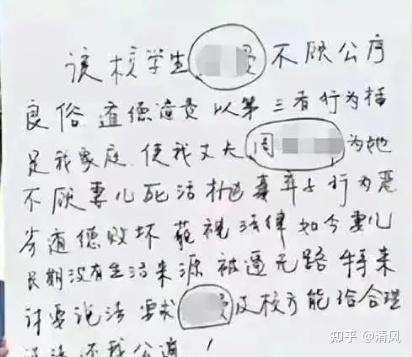 该校学生 不顾公序
良俗 道德沦丧 以第三者行为插
足我家庭 使我丈夫 周 为她
不顾妻儿死活 抛妻弃子 行为恶
劣 道德败坏 藐视法律 如今妻儿
长期没有生活来源 被逼无路 特来
讨要说法 要求 及校方能给合理
还我公道！
知乎 @清风